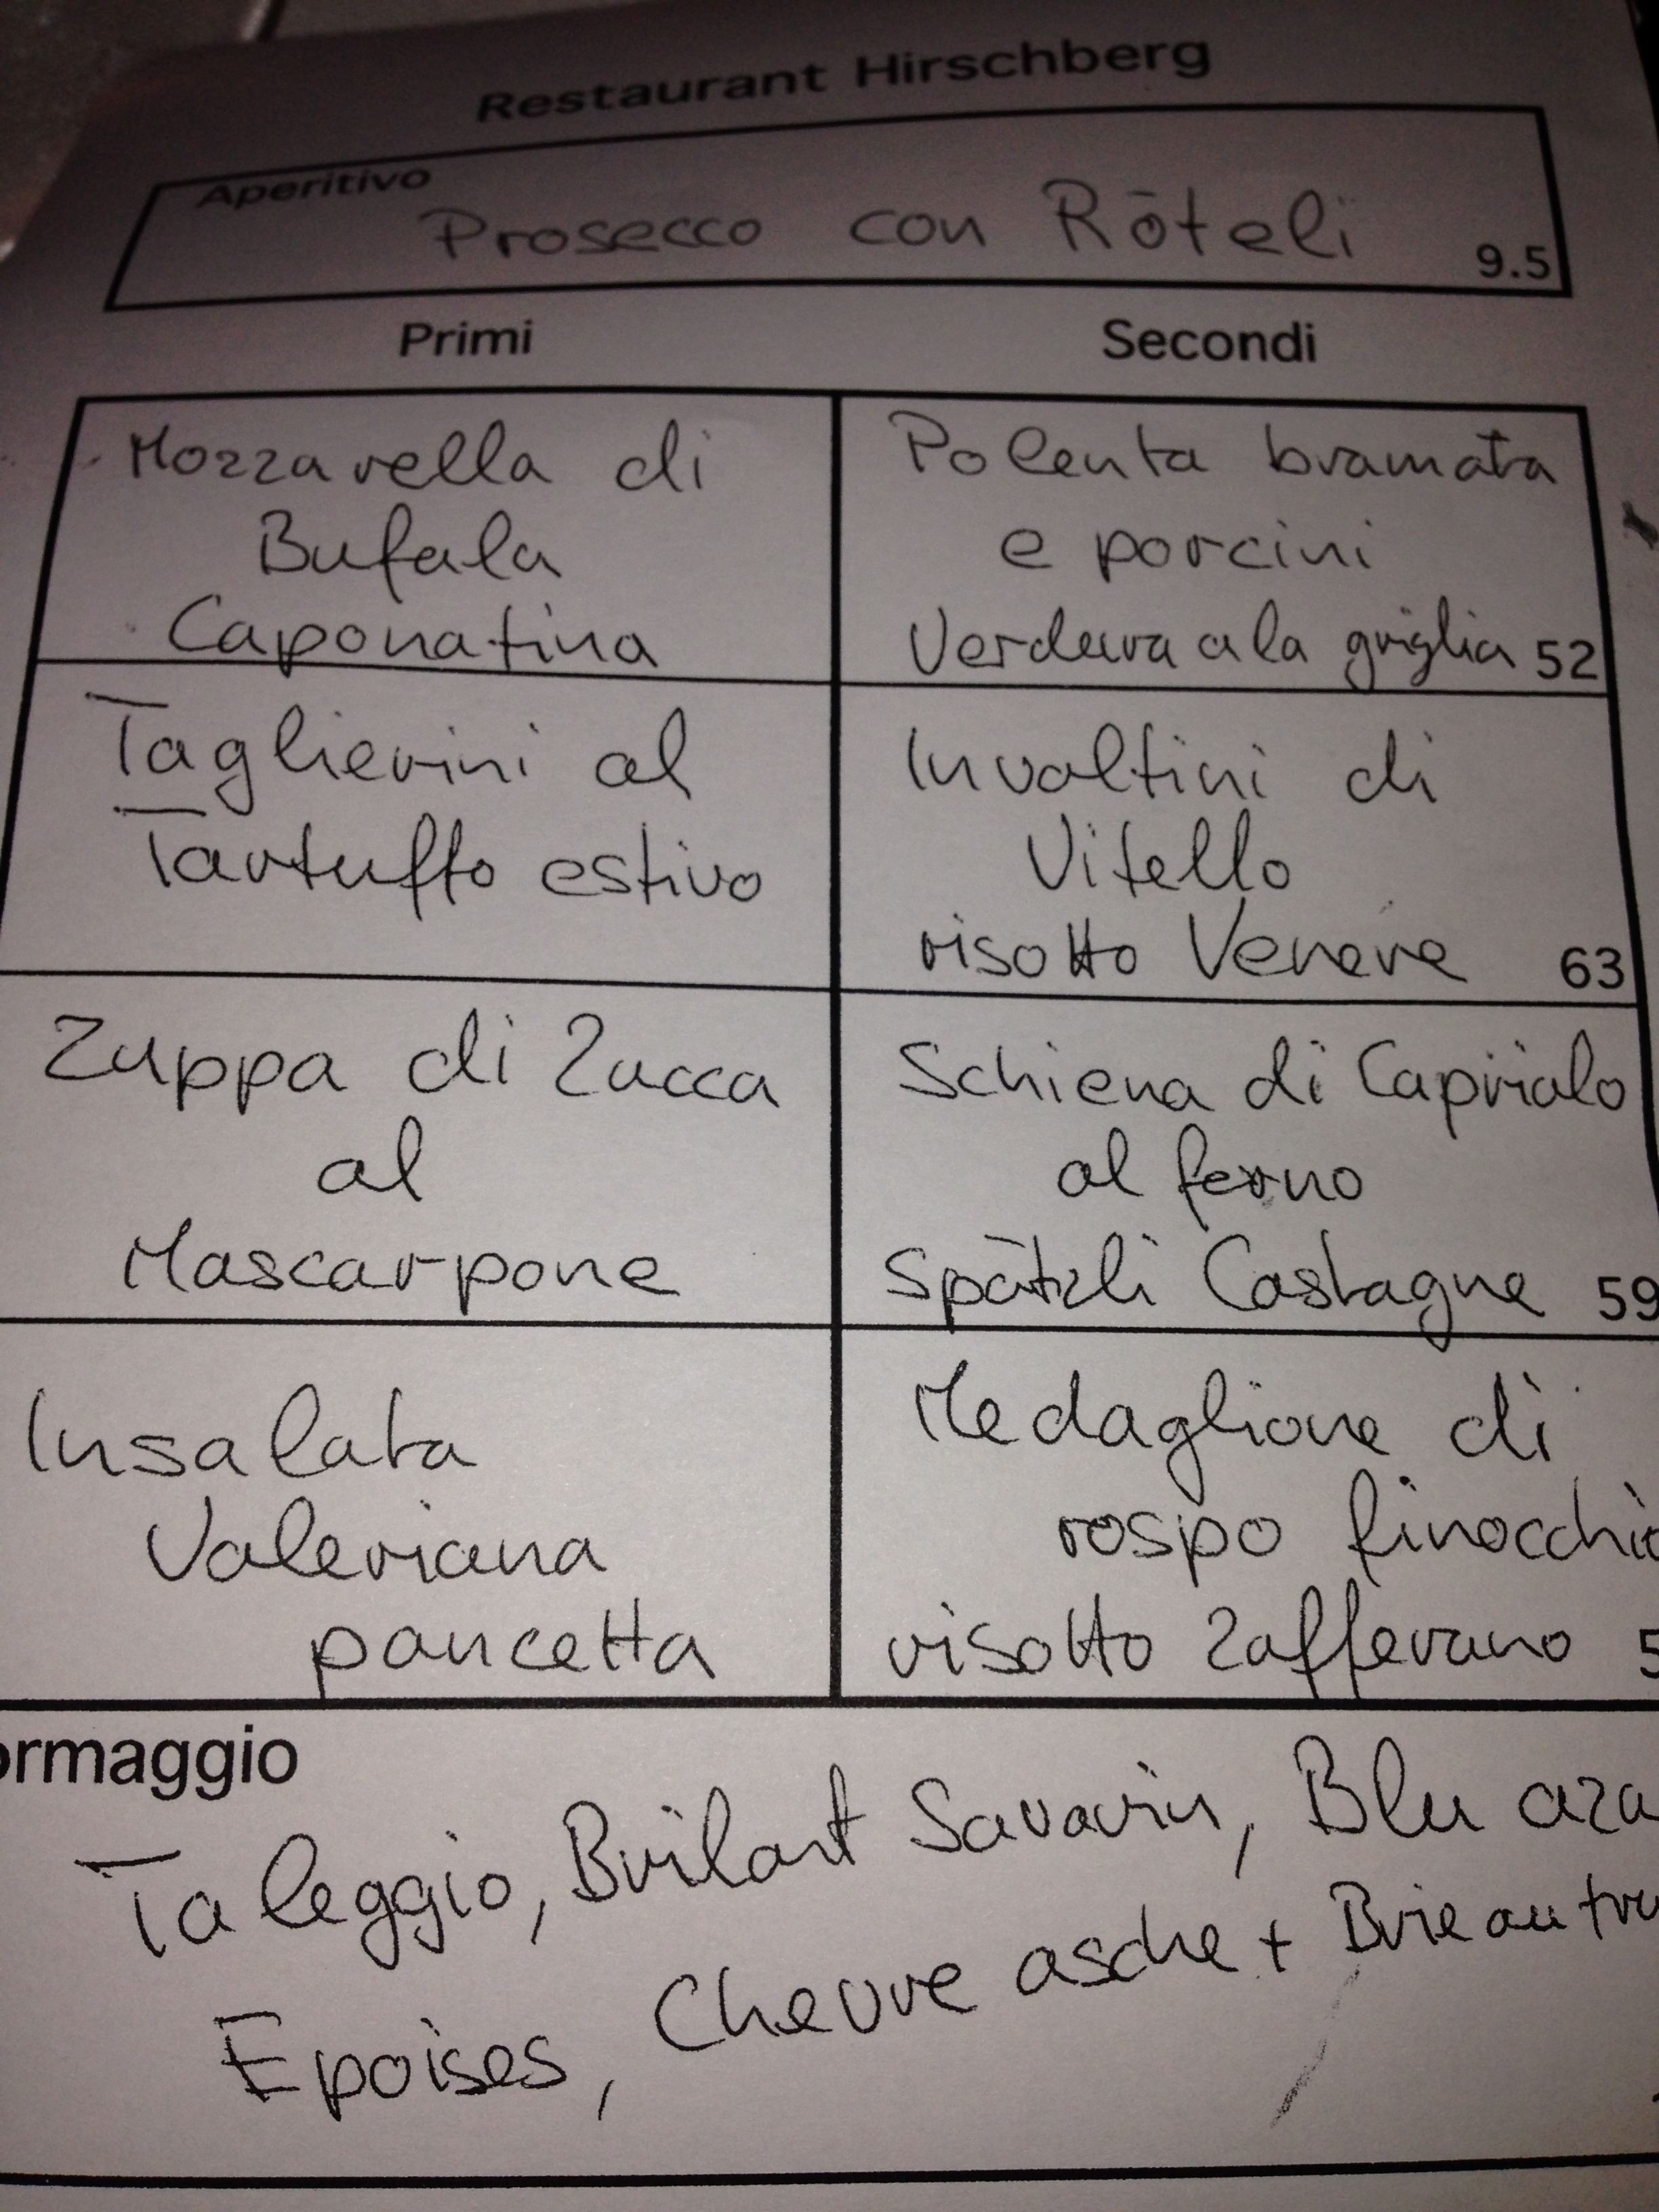 Restaurant Hirschberg
Aperitivo
Prosecco con Röteli 9.5
Primi
Secondi
Mozzarella di
Bufala
Caponatina
Polenta bramata
e porcini
Verdura a la griglia 52
Taglierini al
Tartuffo estivo
Involtini di
Vitello
risotto Venere 63
Zuppa di Zucca
al
Mascarpone
Schiena di Capriolo
al forno
Spätzli Castagne 59
Insalata
Valeriana
pancetta
Medaglione di
rospo finocchio
risotto Zafferano 5
ormaggio
Taleggio, Brilart Savarin, Blu aza
Epoises, Chevre asche + Brie au tru